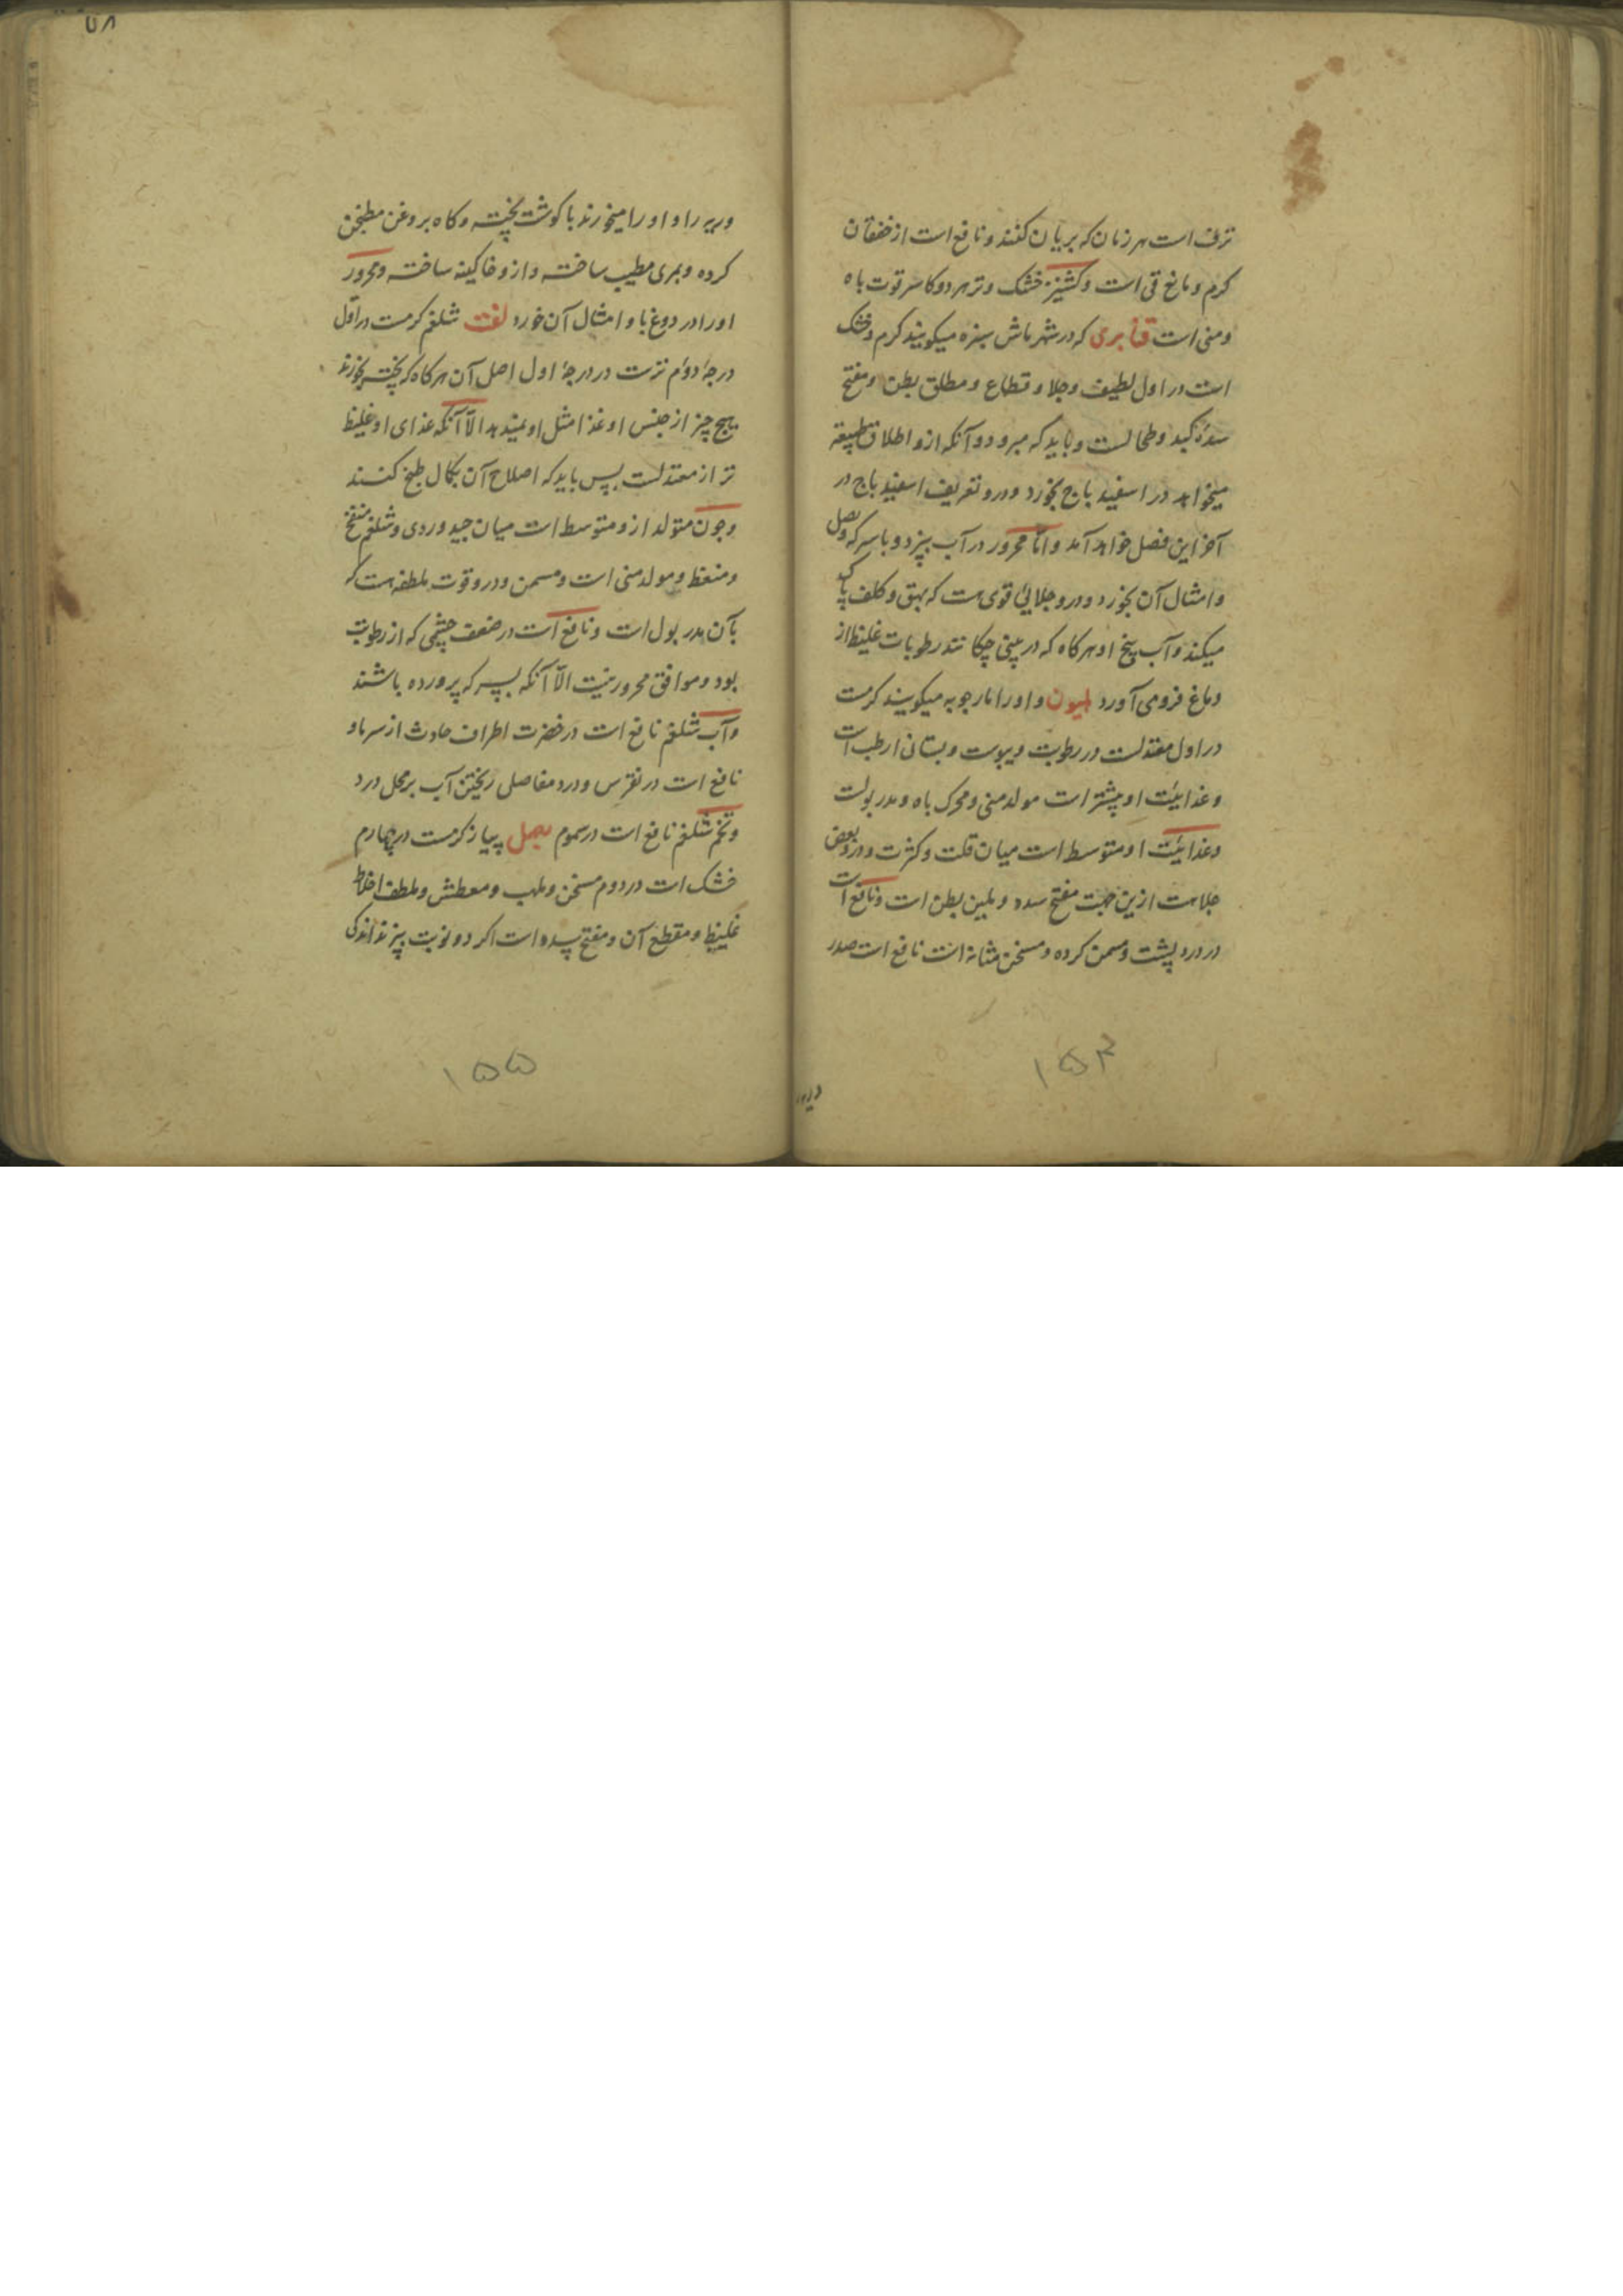 نزف است هر زمان که بریان کنند و نافع است از خفقان
کرم و مانع قی است و کشنیز خشک و تر هر دو کاسر قوت باه
و منی است قنابری که در شهر ماش سبزه میکویند کرم و خشک
است در اول لطیف و جلا و قطاع و مطلق بطن و مفتح
سدهٔ کبد و طحالست و باید که مبرود و آنکه ازو اطلاق طبیعه
میخواهد در اسفید باج بخورد و درو تعریف اسفید باج در
آخر این فصل خواهد آمد و اما محرور در آب بپزد و با سرکه و بصل
و امثال آن بخورد و درو جلایی قوی هست که بهق و کلف پاک
میکند و آب بیخ او هرکاه که در بینی چکانند رطوبات غلیظ از
دماغ فرومی آورد هلیون و او را مارچوبه میکویند کرمست
در اول معتدلست در رطوبت و یبوست و بستانی ارطب است
و غذائیت او بیشتر است مولد منی و محرک باه و مدر بولست
و غذائیت او متوسط است میان قلت و کثرت و درو بعض
جلا هست ازین جهت مفتح سدد و ملین بطن است و نافع است
در درد پشت و مسمن کرده و مسخن مثانه است نافع است صدر
۱۵۴
و ریه را و او را میخورند با کوشت پخته و کاه بروغن مطجن
کرده و بمری مطیب ساخته و ازو خاکینه ساخته و محرور
او را در دوغ با و امثال آن خورد لفت شلغم کرمست در اول
درجهٔ دوم ترست در درجهٔ اول اصل آن هرکاه که پخته بخورند
هیچ چیز از جنس او غذا مثل او نمیدهد الّا آنکه غذای او غلیظ
تر از معتدلست پس باید که اصلاح آن بکمال طبخ کنند
و چون متولد ازو متوسط است میان جید و ردی و شلغم منفخ
و منعظ و مولد منی است و مسمن و درو قوت ملطفه هست که
بآن مدر بول است و نافع است در ضعف چشمی که از رطوبت
بود و موافق محرور نیست الّا آنکه بسرکه پرورده باشند
و آب شلغم نافع است در خضرت اطراف حادث از سرما و
نافع است در نقرس و درد مفاصلی ریختن آب بر محل درد
و تخم شلغم نافع است در سموم بصل پیاز کرمست در چهارم
خشک است در دوم مسخن و ملهب و معطش و ملطف اخلاط
غلیظ و مقطع آن و مفتح سده است اکر دو نوبت بپزند اندکی
۱۵۵